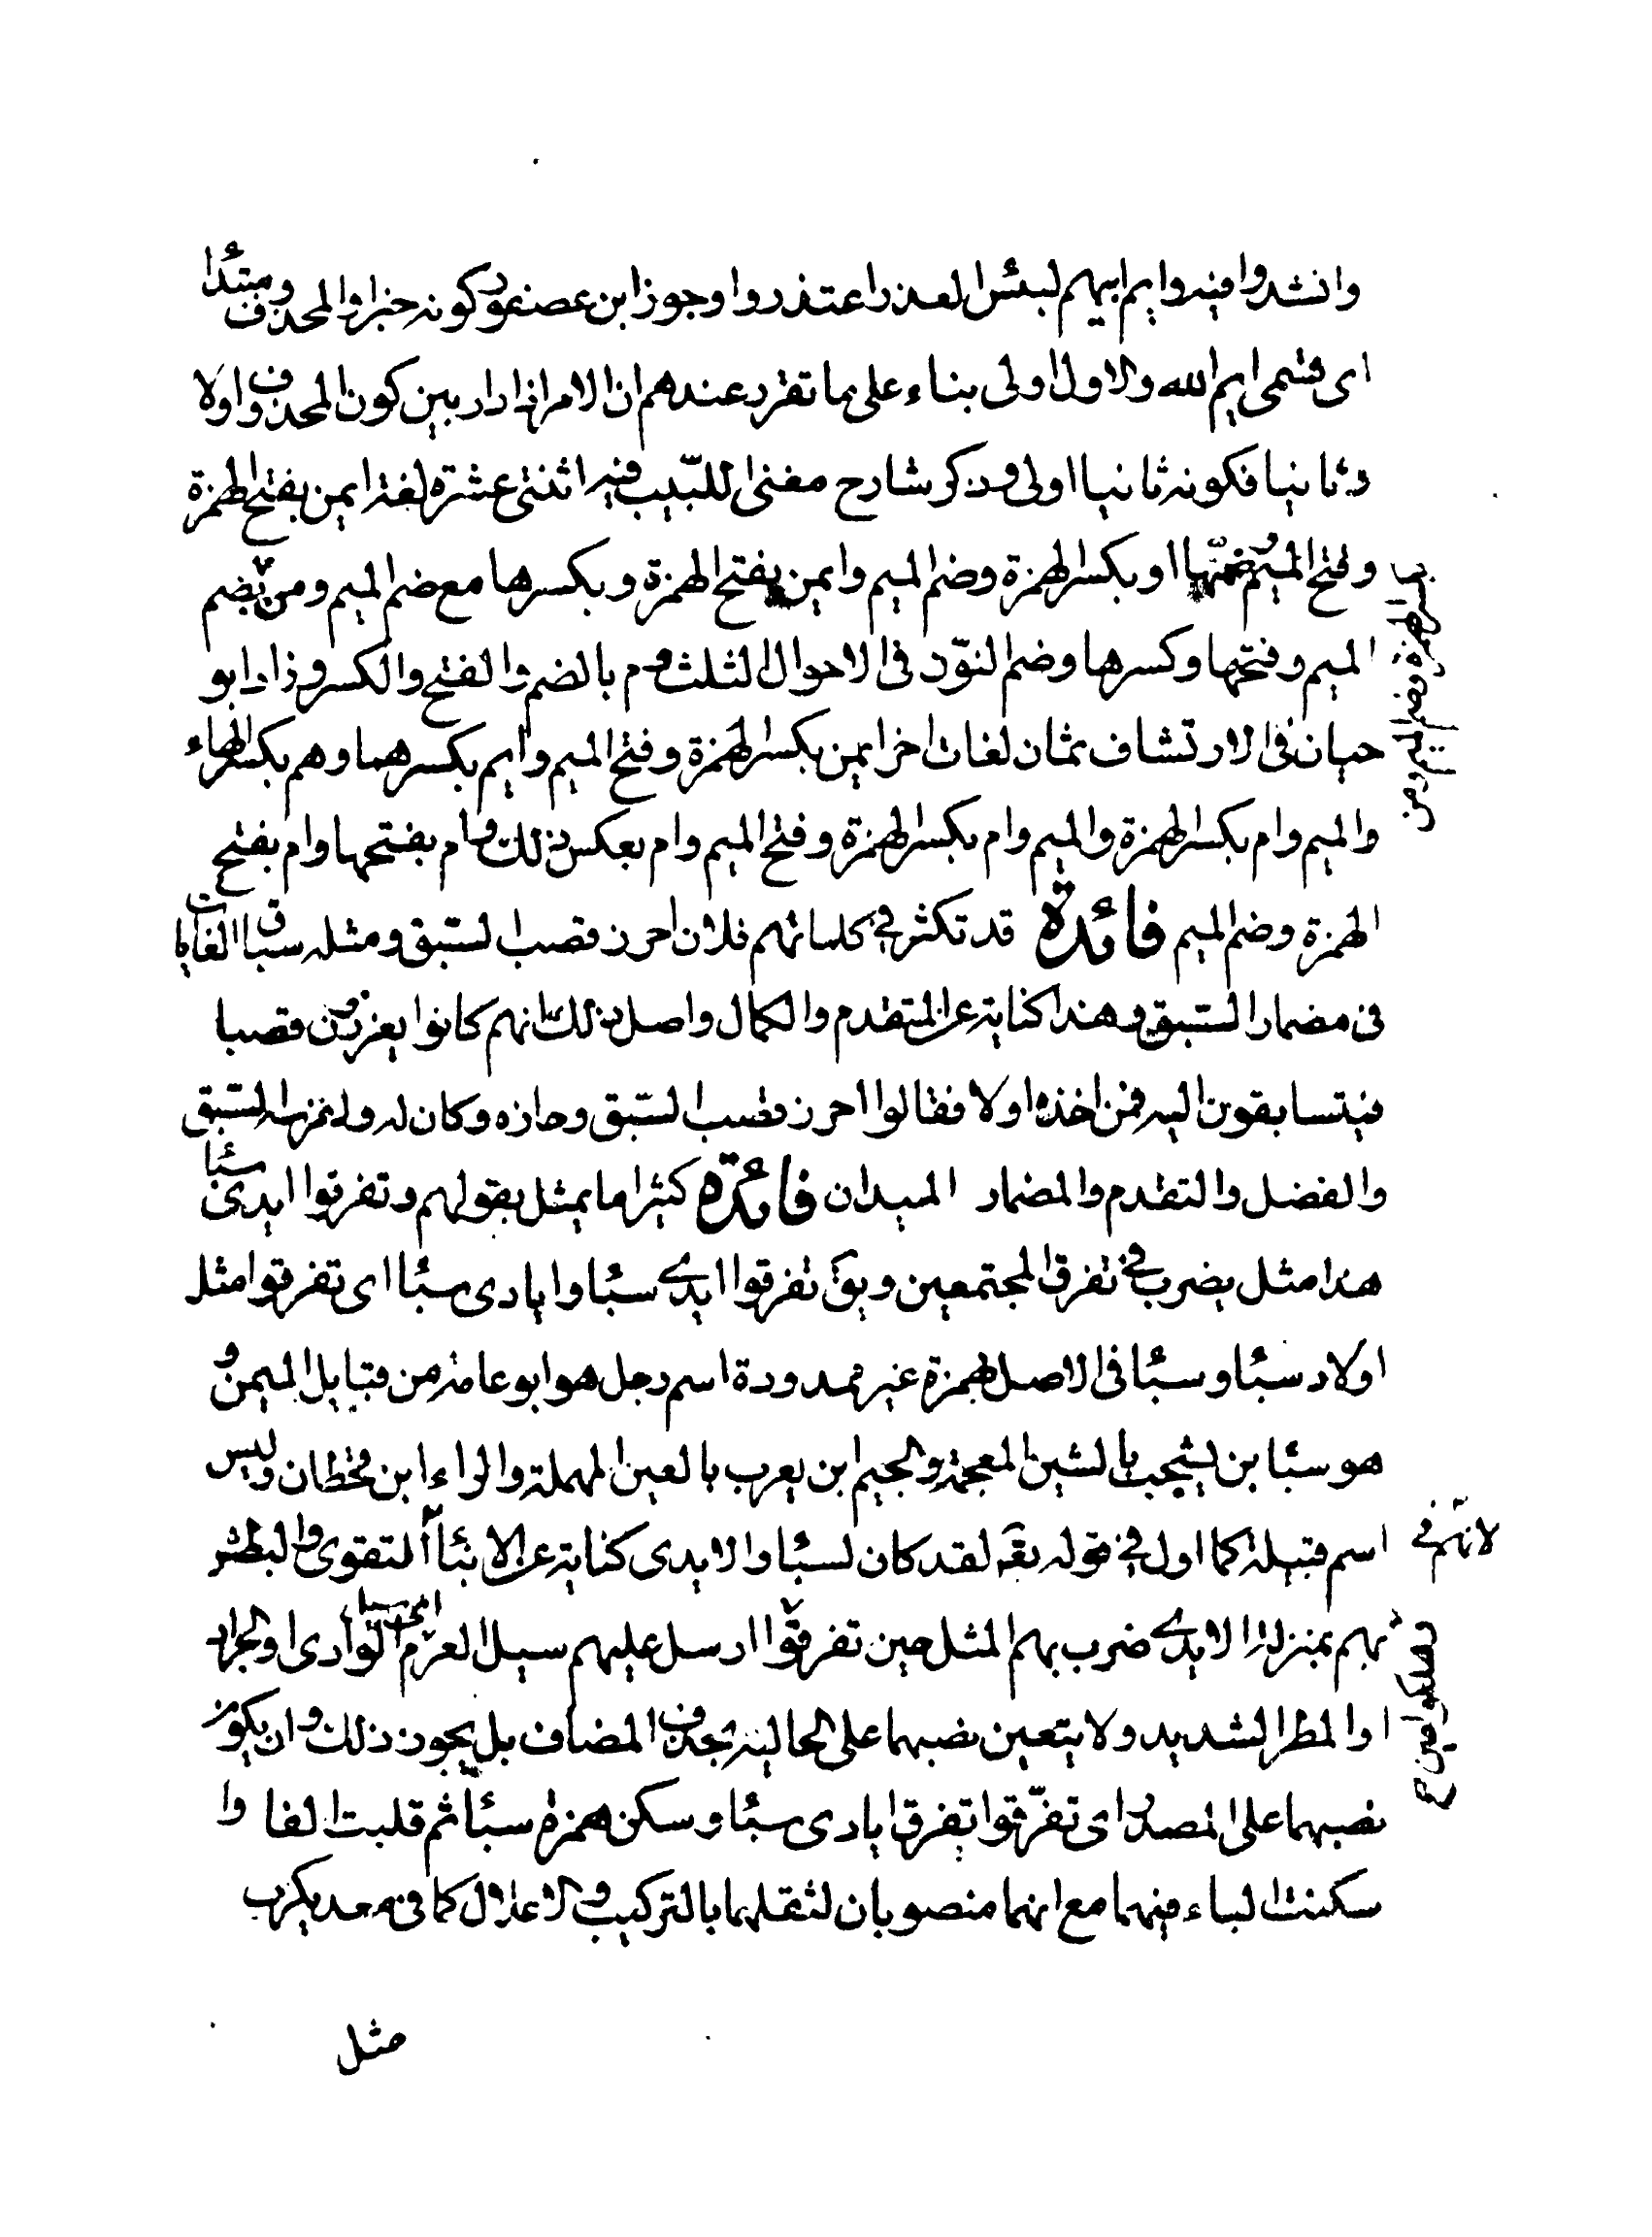 وانشدوا فيه وايم ابيهم لبئس العذر اعتذروا وجوز ابن عصفور كونه خبرا والمحذوف مبتدأ
اى قسمى ايم الله والاول اولى بناء على ما تقرر عندهم ان الامر اذا دار بين كون المحذوف اولا
وثانيا فكونه ثانيا اولى وذكر شارح مغنى اللبيب فيه اثنتى عشرة لغة ايمن بفتح الهمزة
وفتح الميم وضمها او بكسر الهمزة وضم الميم وايمن بفتح الهمزة وبكسرها مع ضم الميم ومن بضم
بكسر الهمزة وضم الميم ومن
الميم وفتحها وكسرها وضم النون فى الاحوال الثلث وم بالضم والفتح والكسر وزاد ابو
حيان فى الارتشاف ثمان لغات اخر ايمن بكسر الهمزة وفتح الميم وايم بكسرهما وهم بكسر الهاء
والميم وام بكسر الهمزة والميم وام بكسر الهمزة وفتح الميم وام بعكس ذلك وام بفتحها وام بفتح
الهمزة وضم الميم فائدة قد تكثر فى كلماتهم فلان احرز قصب السبق ومثله سباق الغايات
فى مضمار السبق وهذا كناية عن التقدم والكمال واصل ذلك انهم كانوا يغرزون قصبا
فيتسابقون اليه فمن اخذه اولا فقالوا احرز قصب السبق وحازه وكان له السبق
والفضل والتقدم والمضمار الميدان فائدة كثيرا ما يمثل بقولهم وتفرقوا ايدى سبأ
هذا مثل يضرب فى تفرق المجتمعين ويق تفرقوا ايدى سبئا وايادى سبئا اى تفرقوا مثل
اولاد سبئا وسبئا فى الاصل بهمزة غير ممدودة اسم رجل هو ابو عامة من قبايل اليمن و
هو سبئا بن يشجب بالشين المعجمة والجيم ابن يعرب بالعين المهملة والراء ابن قحطان وليس
اسم قبيلة كما اول فى قوله تعه لقد كان لسبئا والايدى كناية عن الابناء لانهم فى التقوى والبطش
بهم بمنزلة الايدى ضرب بهم المثل حين تفرقوا ارسل عليهم سيل العرم اى الوادى او الجراد
او المطر الشديد ولا يتعين نصبهما على الحالية بحذف المضاف بل يجوز ذلك وان يكون
نصبهما على المصدر اى تفرقوا تفرق ايادى سبئا وسكن همزة سبئا ثم قلبت الفا وا
سكنت الياء فيهما مع انهما منصوبان لثقلهما بالتركيب والاعلال كما فى معديكرب
مثل